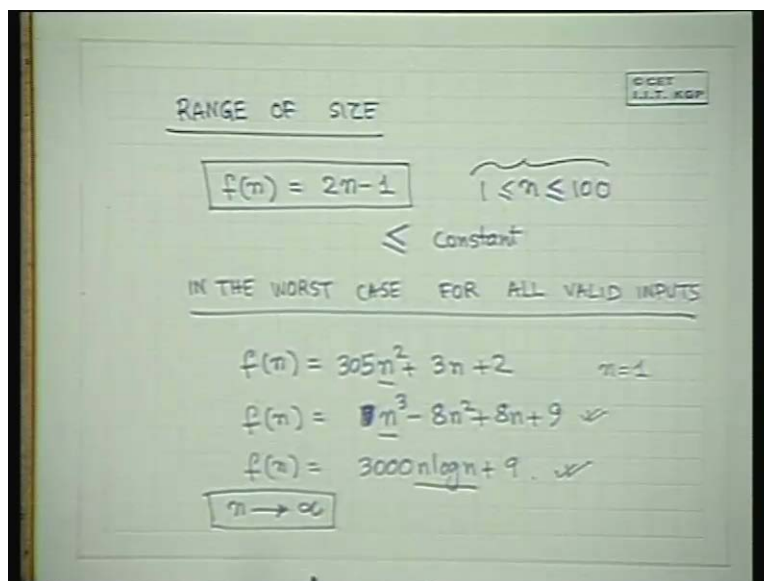 © CET
I.I.T. KGP
RANGE OF SIZE
f(n) = 2n-1 1 ≤ n ≤ 100
≤ Constant
IN THE WORST CASE FOR ALL VALID INPUTS
f(n) = 305n² + 3n + 2 n=1
f(n) = n³ - 8n² + 8n + 9
f(n) = 3000 n log n + 9.
n → ∝